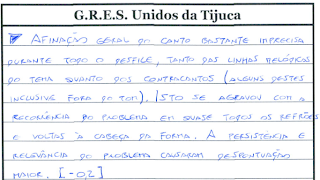 G.R.E.S. Unidos da Tijuca
AFINAÇÃO GERAL DO CANTO BASTANTE IMPRECISA
DURANTE TODO O DESFILE, TANTO DAS LINHAS MELÓDICAS
DO TEMA QUANTO DOS CONTRACANTOS (ALGUNS DESTES
INCLUSIVE FORA DO TOM). ISTO SE AGRAVOU COM A
RECORRÊNCIA DO PROBLEMA EM QUASE TODOS OS REFRÕES
E VOLTAS À CABEÇA DA FORMA. A PERSISTÊNCIA E
RELEVÂNCIA DO PROBLEMA CAUSARAM DESPONTUAÇÃO
MAIOR. [-0,2]